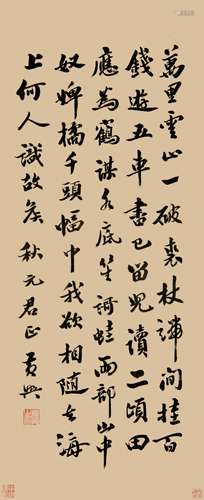 萬里雲山一破裘杖端閒挂百
錢遊五車書已留兒讀二頃田
應為鶴謀水底笙歌蛙兩部山中
奴婢橘千頭幅巾我欲相隨去海
上何人識故矦 秋元君正 黃興